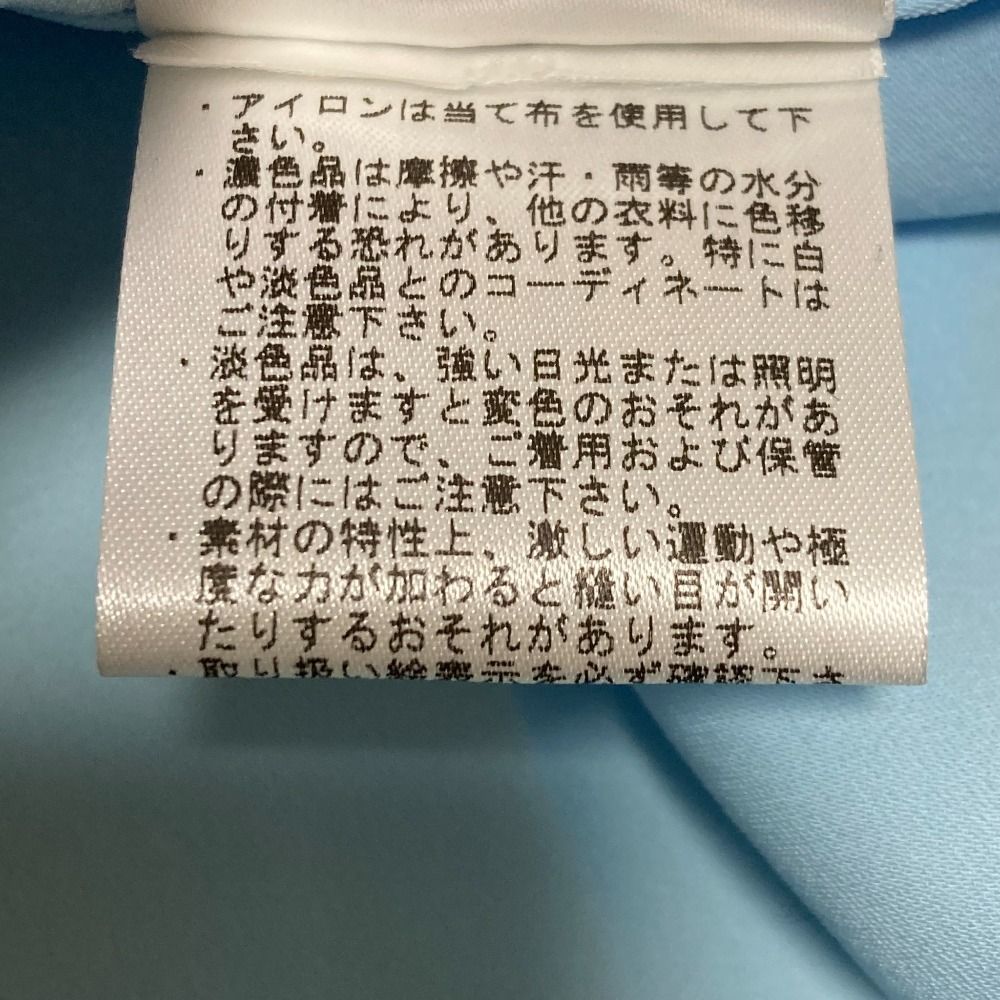 ・アイロンは当て布を使用して下
さい。
・濃色品は摩擦や汗・雨等の水分
の付着により、他の衣料に色移
りする恐れがあります。特に白
や淡色品とのコーディネートは
ご注意下さい。
・淡色品は、強い日光または照明
を受けますと変色のおそれがあ
りますので、ご着用および保管
の際にはご注意下さい。
・素材の特性上、激しい運動や極
度な力が加わると縫い目が開い
たりするおそれがあります。
・取り扱い絵表示を必ず確認下さ